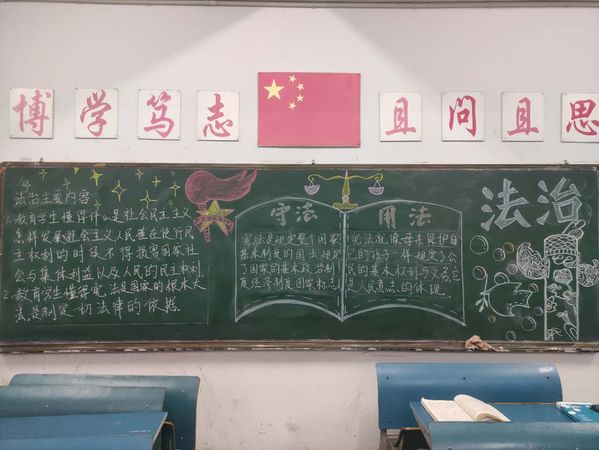 博学笃志
且问且思
法治主要内容
1.教育学生懂得什么是社会民主主义
怎样发展社会主义人民道在使行民
主权利的时候不得损害国家社
会与集体利益以及人民的民主权利
2.教育学生懂得宪法是国家的根本大
法,是制定一切法律的依据
守法
宪法是规定整个国家
基本制度的国法规定
了国家的基本政治制
度经济制度国家标志
用法
宪法就像母亲保护自
己的孩子一样规定了公
民的基本权利与义务它
是人民意志的体现
法治